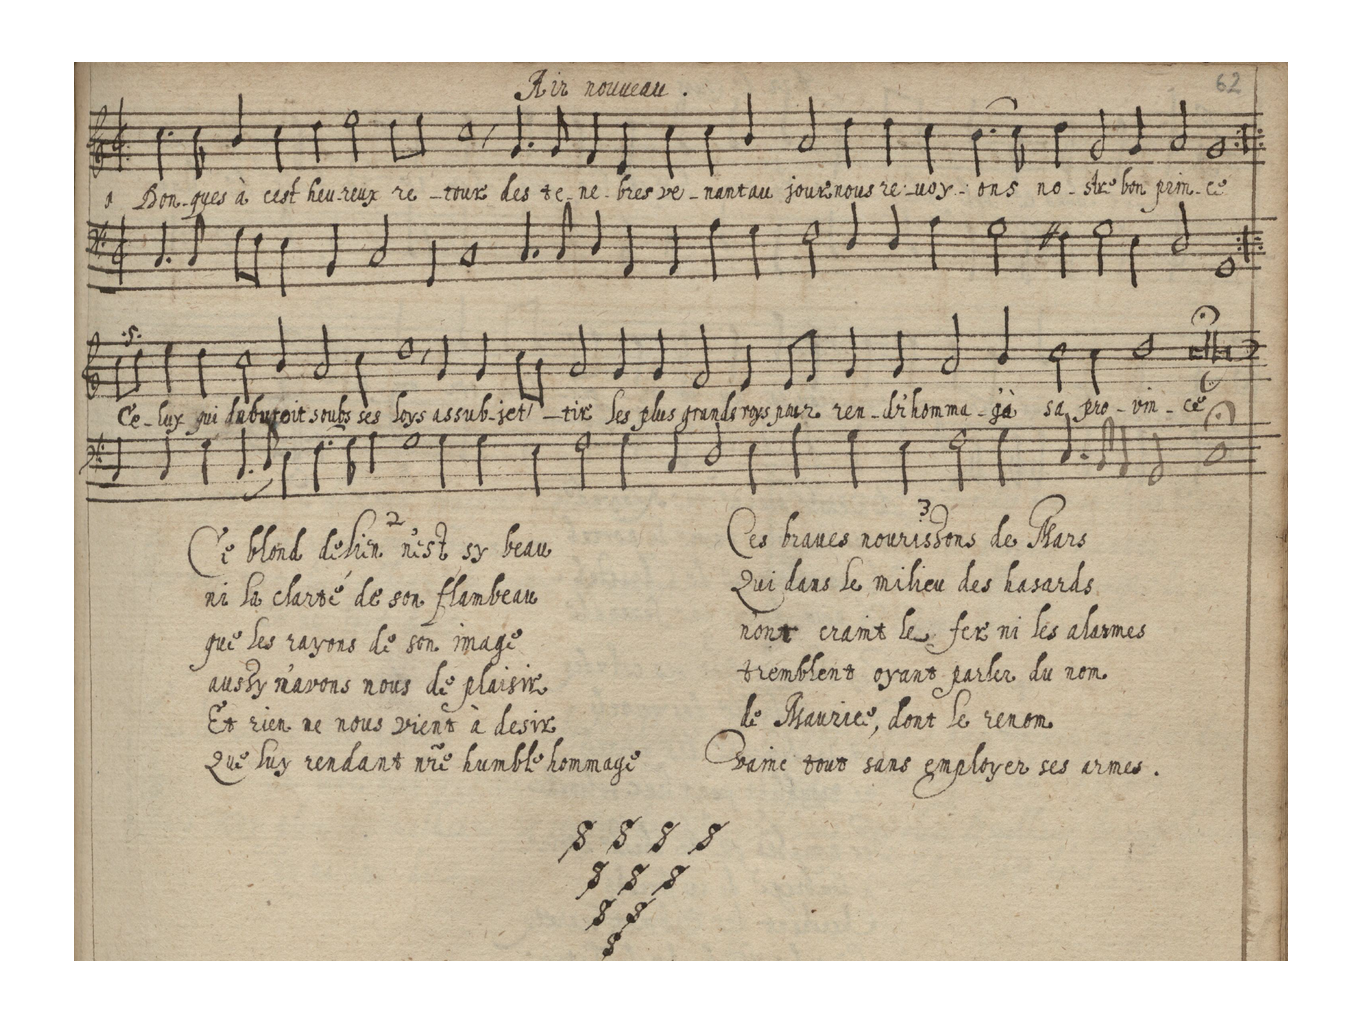 Air nouueau.
62
Don-ques à cest heu-reux re-tour des te-ne-bres ve-nant au jour nous re-uoy-ons no-stre bon prin-ce
Ce-luy qui soubs ses loys as sub-jet-tir les plus grands roys pour ren-dr'homma-gé sa pro-vin-ce
2
Ce blond delien n'est sy beau
ni la clarté de son flambeau
que les rayons de son image
aussy n'avons nous de plaisir
Et rien ne nous vient à desir
Que luy rendant nr̃e humble hommage
3
Ces braues nourissons de Mars
Qui dans le milieu des hasards
n'ont craint le fer ni les alarmes
tremblent oyant parler du nom
de Maurice, dont le renom
vainc tout sans employer ses armes.